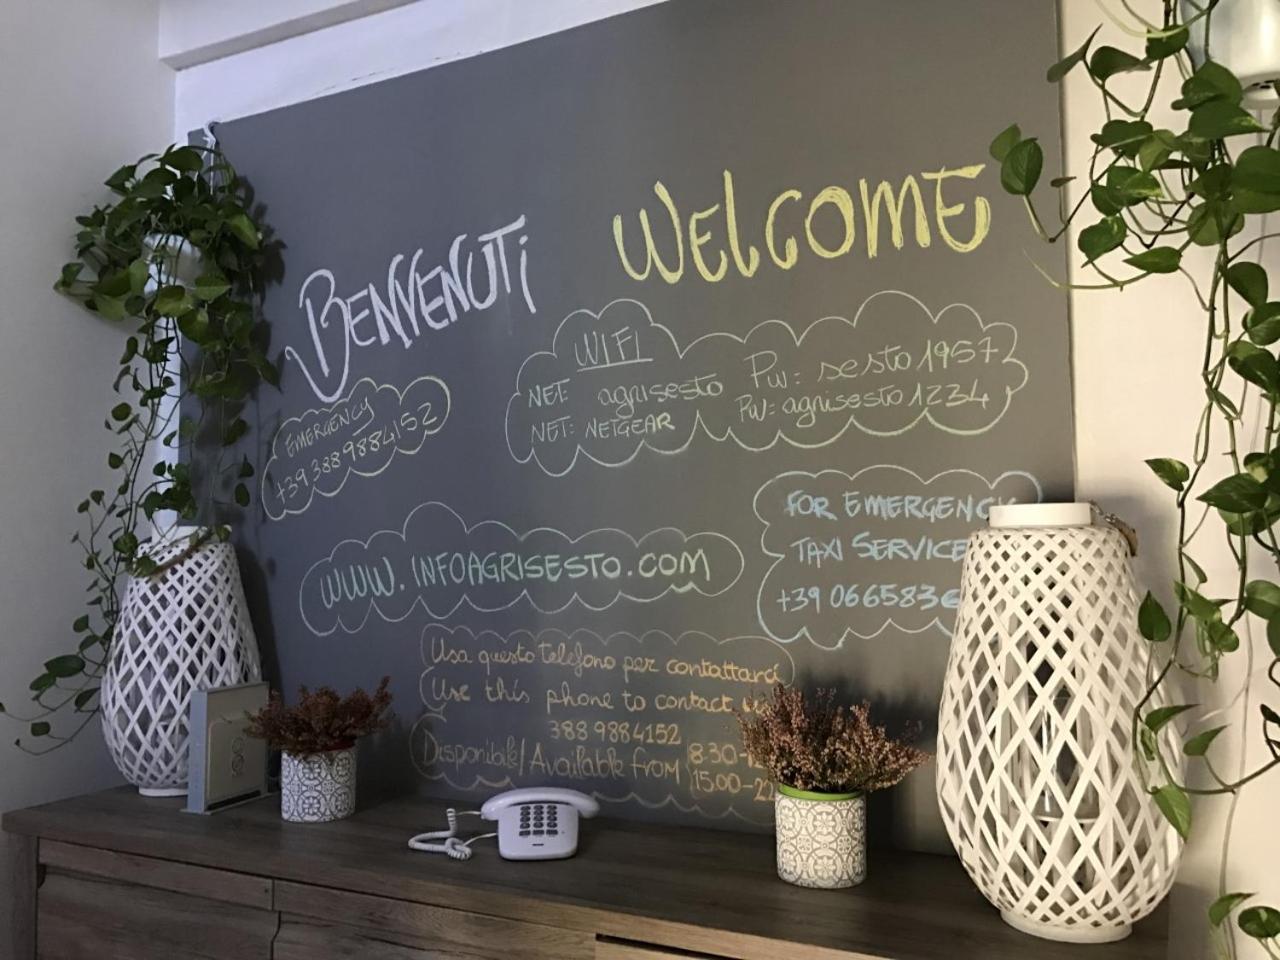 BENVENUTI
WELCOME
EMERGENCY
+39 388 9884152
WIFI
NET: agrisesto Pw: sesto1957
NET: NETGEAR Pw: agrisesto1234
WWW.INFOAGRISESTO.COM
FOR EMERGENCY
TAXI SERVICE
+39 066583
Usa questo telefono per contattarci
Use this phone to contact
388 9884152
Disponibile/Available from 8:30-
15.00-2